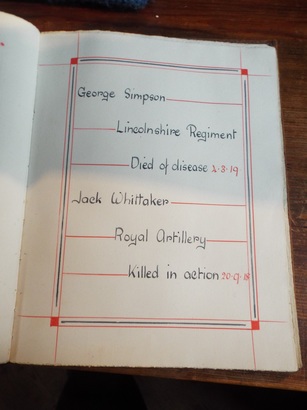 George Simpson
Lincolnshire Regiment
Died of disease
Jack Whittaker
Royal Artillery
Killed in action